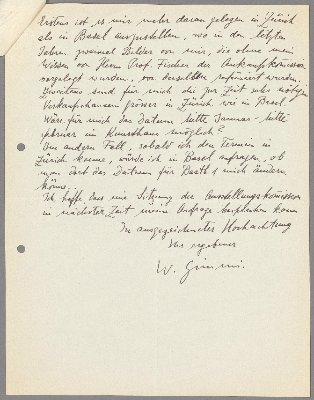 Erstens ist es mir mehr daran gelegen in Zürich
als in Basel auszustellen, wo in den letzten
Jahren zweimal Bilder von mir, die ohne mein
Wissen von Herrn Prof. Fischer der Ankaufskomission
vorgelegt wurden, von derselben refusiert wurden.
Zweitens sind für mich die zur Zeit sehr nötigen
Verkaufschancen grösser in Zürich wie in Basel
Wäre für mich das Datum Mitte Januar - Mitte
Februar im Kunsthaus möglich?
Im andern Fall, sobald ich den Termin in
Zürich kenne, würde ich in Basel anfragen, ob
man dort das Datum für Barth & mich ändern
könne.
Ich hoffe dass eine Sitzung der Ausstellungskomission
in nächster Zeit meine Anfrage besprechen kann
In ausgezeichneter Hochachtung
Ihr ergebener
W. Gimmi.